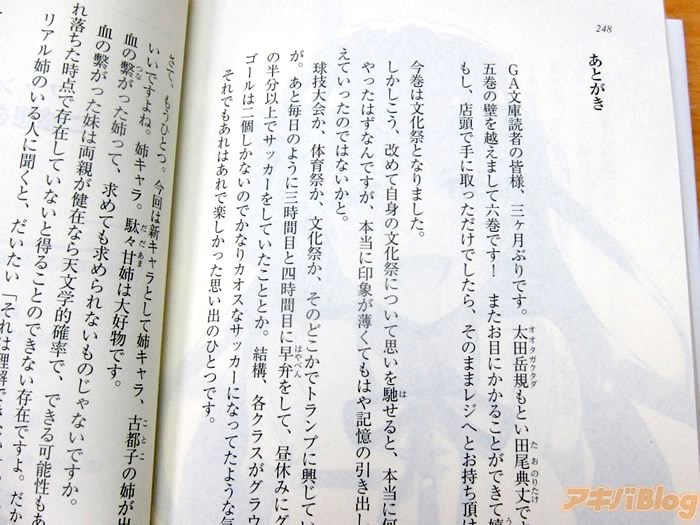 248
あとがき
GA文庫読者の皆様、三ヶ月ぶりです。太田岳規もとい田尾典丈で
五巻の壁を越えまして六巻です! またお目にかかることができて嬉
もし、店頭で手に取っただけでしたら、そのままレジへとお持ち頂け
今巻は文化祭となりました。
しかしこう、改めて自身の文化祭について思いを馳せると、本当に何
やったはずなんですが、本当に印象が薄くてもはや記憶の引き出し
えていったのではないかと。
球技大会か、体育祭か、文化祭か、そのどこかでトランプに興じてい
が。あと毎日のように三時間目と四時間目に早弁をして、昼休みにグ
の半分以上でサッカーをしていたこととか。結構、各クラスがグラウ
ゴールは二個しかないのでかなりカオスなサッカーになってたような気
それでもあれはあれで楽しかった思い出のひとつです。
さて、もうひとつ。今回は新キャラとして姉キャラ、古都子の姉が出
いいですよね。姉キャラ。駄々甘姉は大好物です。
血の繋がった姉って、求めても求められないものじゃないですか。
血の繋がった妹は両親が健在なら天文学的確率で、できる可能性もあ
れ落ちた時点で存在していないと得ることのできない存在ですよ。だか
リアル姉のいる人に聞くと、だいたい「それは理解でき
アキバBlog